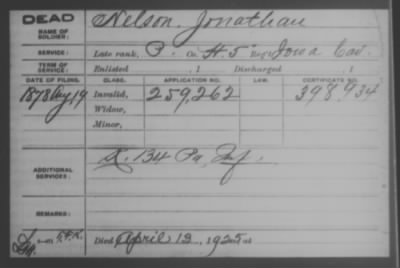 DEAD
NAME OF SOLDIER: Nelson, Jonathan
SERVICE: Late rank, P. Co. H. 5 Reg't Iowa Cav.
TERM OF SERVICE: Enlisted , 1 Discharged , 1
DATE OF FILING. CLASS. APPLICATION NO. LAW. CERTIFICATE NO.
1878 Aug 19 Invalid, 259,262 398.934
Widow,
Minor,
ADDITIONAL SERVICES: K. 134 Pa. Inf.
REMARKS:
Died April 13, 1925 at